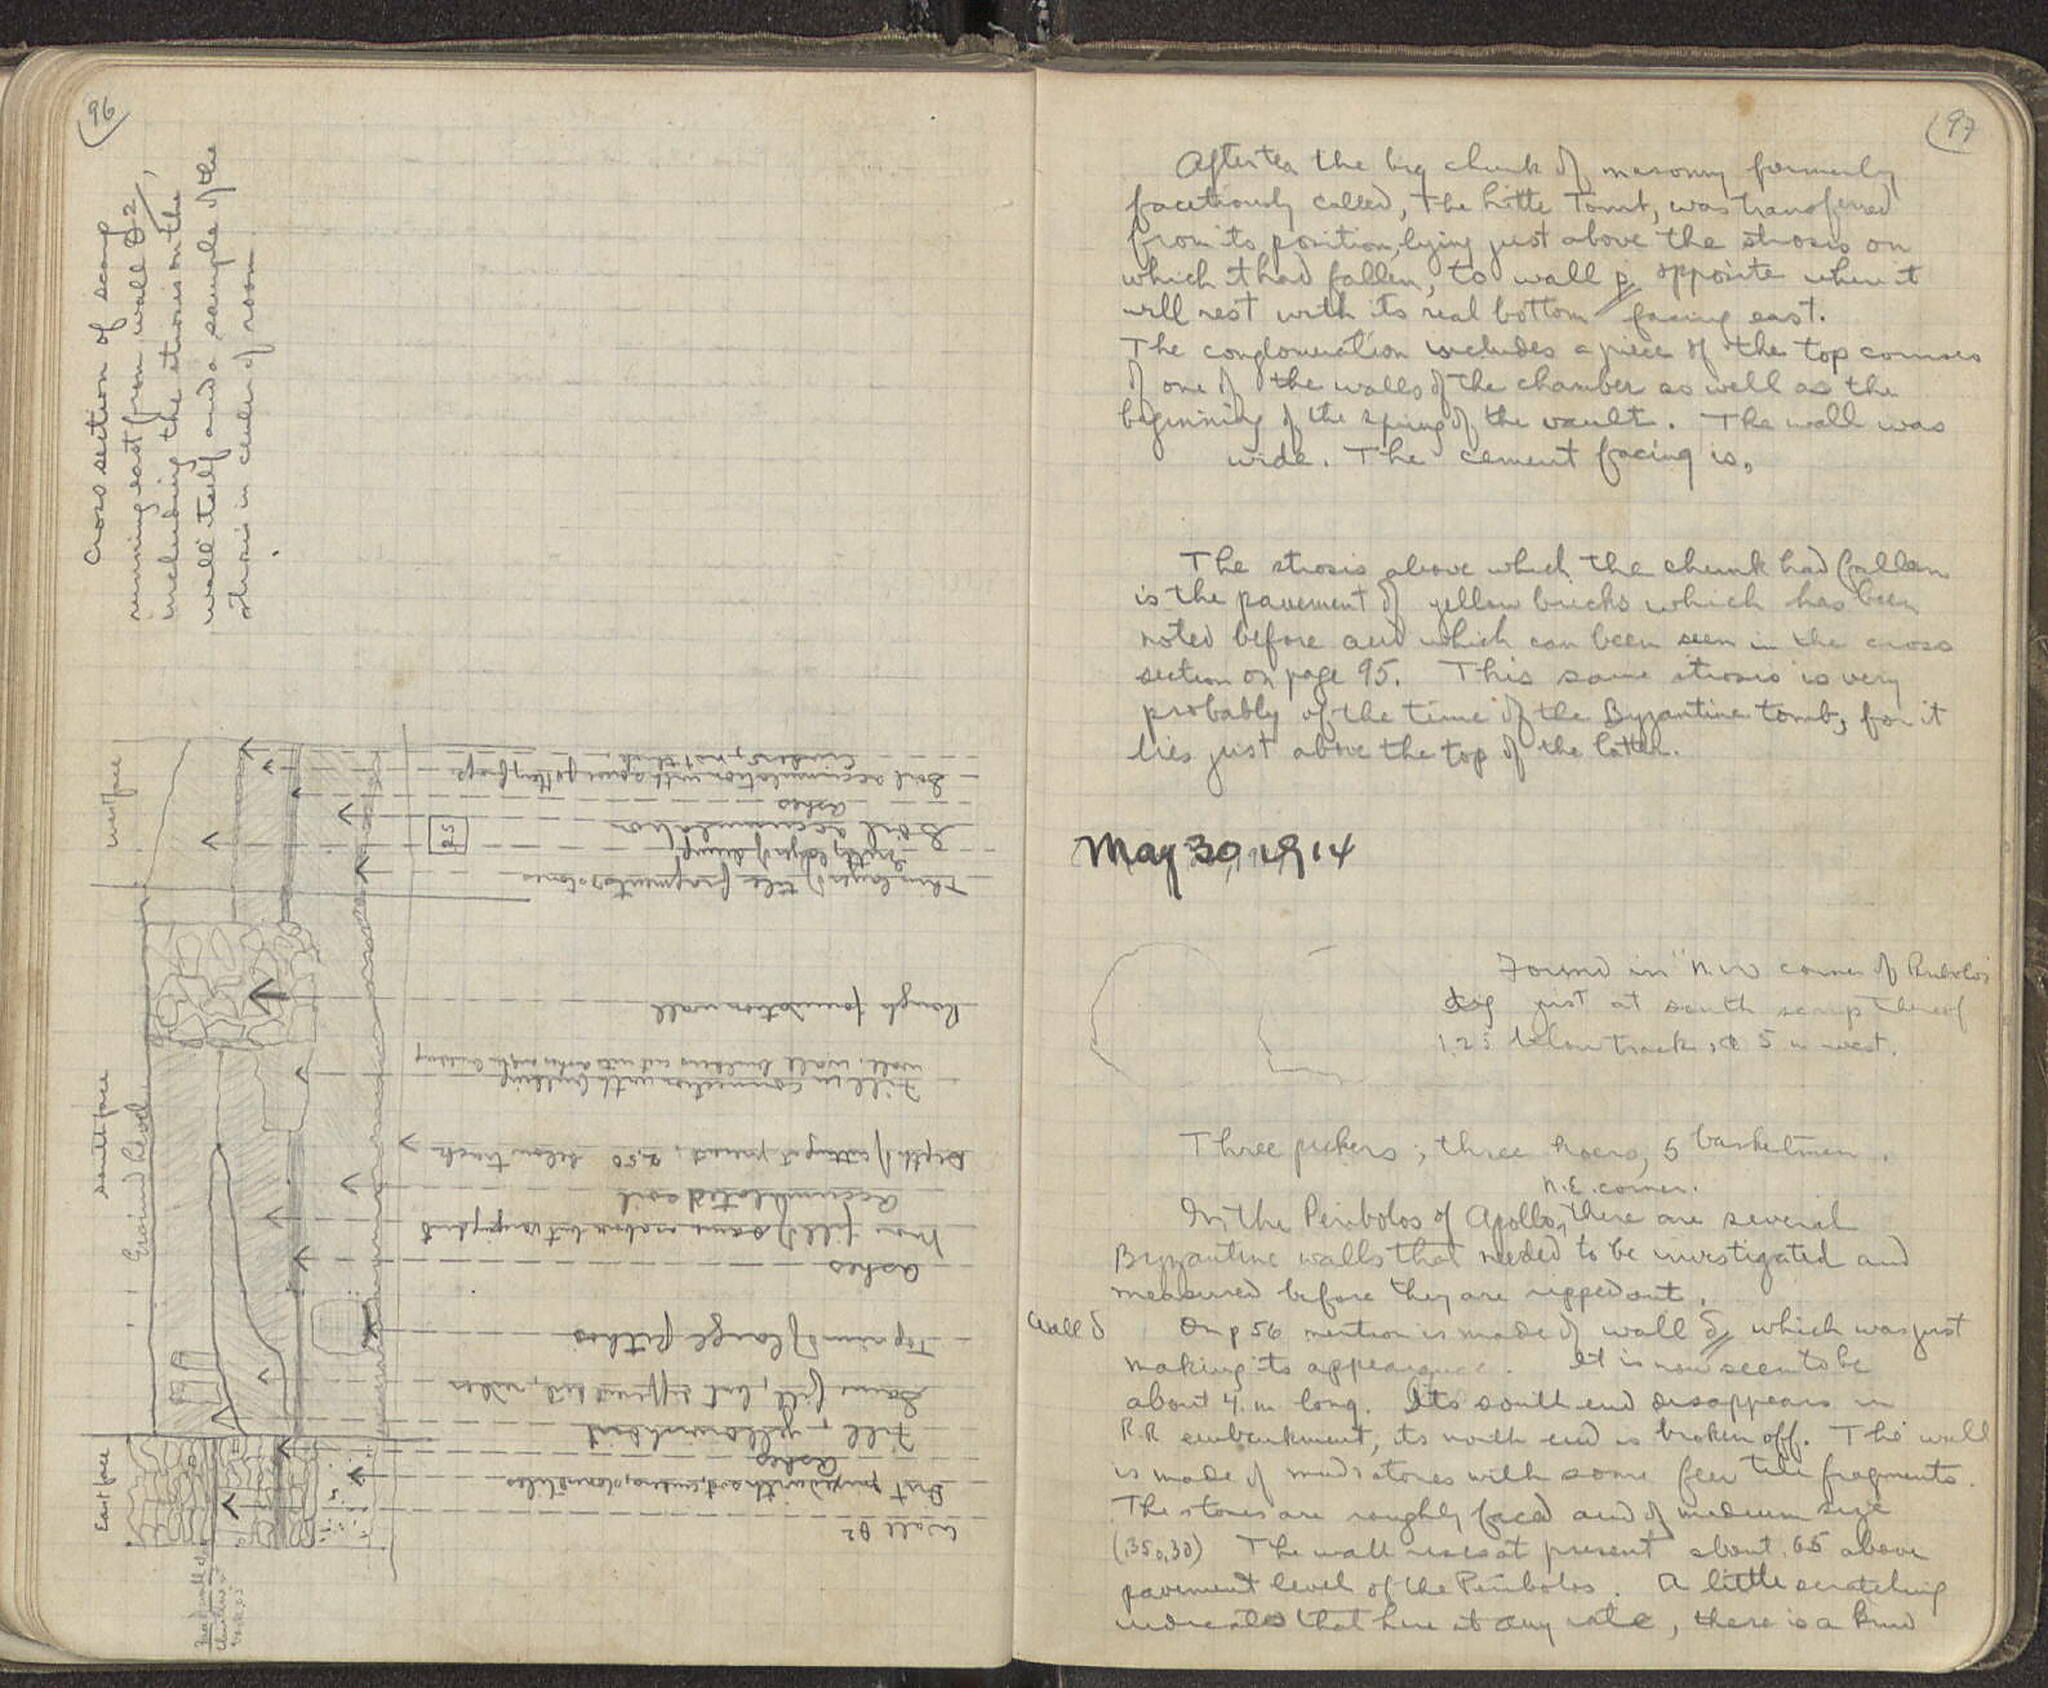 96
Cross section of scarp
running east from wall θ2,
including the strosis on the
wall itself and a sample of the
strosis in center of room.
west face
south face
Ground level
East face
Cinders, not thick
Soil accumulation with some pottery frags.
Ashes
Soil accumulation
25
Thin layer of tile fragments & stones
Rough foundation wall
Fill in connection with building
Depth of cutting at present, 2.50 below track
Accumulated soil
Ashes
Top rim of large pithos
Same fill, but different dirt, redder
Fill, yellowish dirt
Ashes
Wall θ2
97
After tea the big chunk of masonry formerly
facetiously called, the Little Tomb, was transferred
from its position, lying just above the strosis on
which it had fallen, to wall opposite where it
will rest with its real bottom facing east.
The conglomeration includes a piece of the top courses
of one of the walls of the chamber as well as the
beginning of the spring of the vault. The wall was
wide. The cement facing is,
The strosis above which the chunk had fallen
is the pavement of yellow bricks which has been
noted before and which can been seen in the cross
section on page 95. This same strosis is very
probably of the time of the Byzantine tomb, for it
lies just above the top of the latter.
May 30, 1914
Found in N.W corner of Peribolos
just at south scarp thereof
1.25 below track, @ 5 m west.
Three pickers; three hoers, 5 basketmen.
N.E. corner.
In the Peribolos of Apollo, there are several
Byzantine walls that needed to be investigated and
measured before they are ripped out.
Wall δ
On p 56 mention is made of wall δ which was just
making its appearance. It is now seen to be
about 4. m long. Its south end disappears in
R.R embankment, its north end is broken off. The wall
is made of mud & stones with some few tile fragments.
The stones are roughly faced and of medium size
(.35 0,30) The wall rises at present about .65 above
pavement level of the Peribolos. A little scratching
indicates that here at any rate, there is a kind